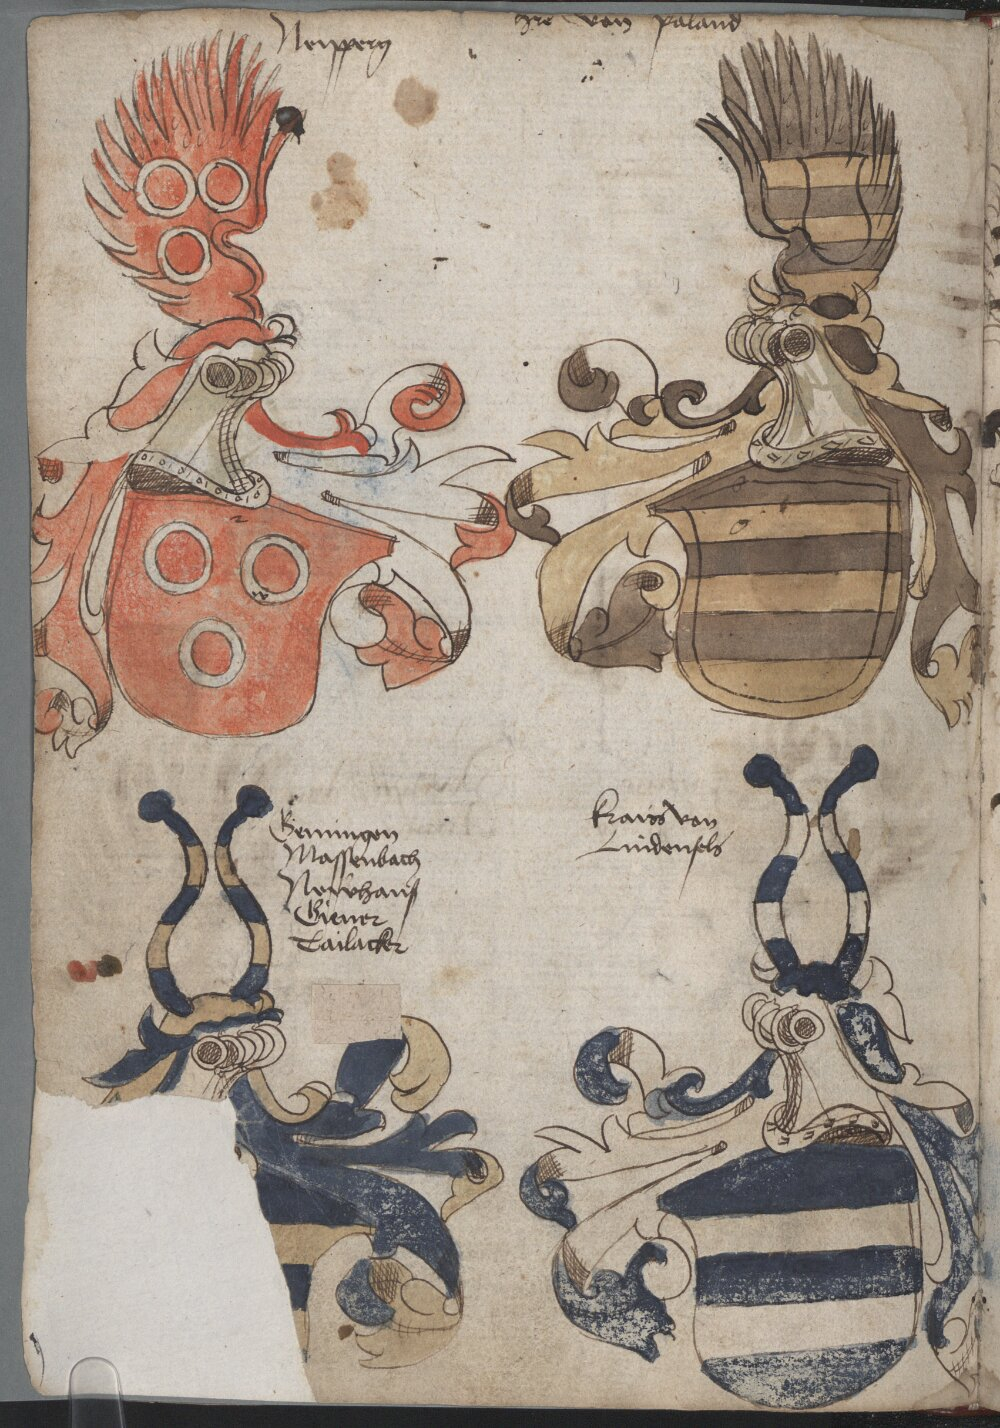 Neipperg
Hre von Paland
Gemingen
Massenbach
Newhaus
Giener
Tailacker
Kraiss von
Lindenfels